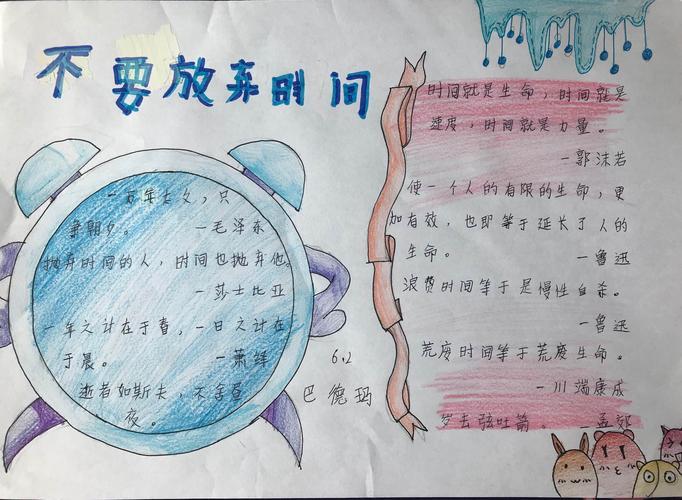 不要放弃时间
一万年太久，只
争朝夕。 —毛泽东
抛弃时间的人，时间也抛弃他。
—莎士比亚
一年之计在于春，一日之计在
于晨。 —萧绎
逝者如斯夫，不舍昼
夜。
6.2
巴德玛
时间就是生命，时间就是
速度，时间就是力量。
—郭沫若
使一个人的有限的生命，更
加有效，也即等于延长了人的
生命。 —鲁迅
浪费时间等于是慢性自杀。
—鲁迅
荒废时间等于荒废生命。
—川端康成
岁去弦吐箭。 —孟郊